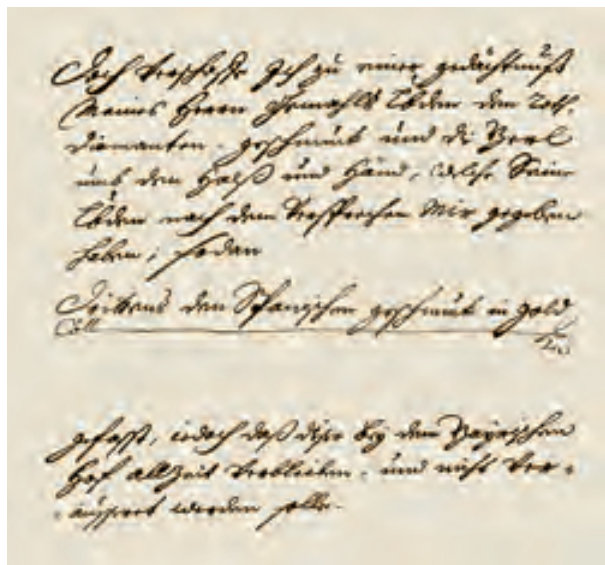 Doch verschaffe Ich zu einer gedächtnuß
Meines Herrn Gemahls Lbden den
Diamanten-geschmuck und die Peerl
umb den Halß und Händ, welche Seine
Lbden nach dem Versprechen Mir gegeben
haben, sodan
Drittens den Spanischen geschmuck in gold
gefasst, iedoch daß diser bey dem Bayrischen
Hof allzeit verbleiben, und nicht ver-
äussert werden solle.